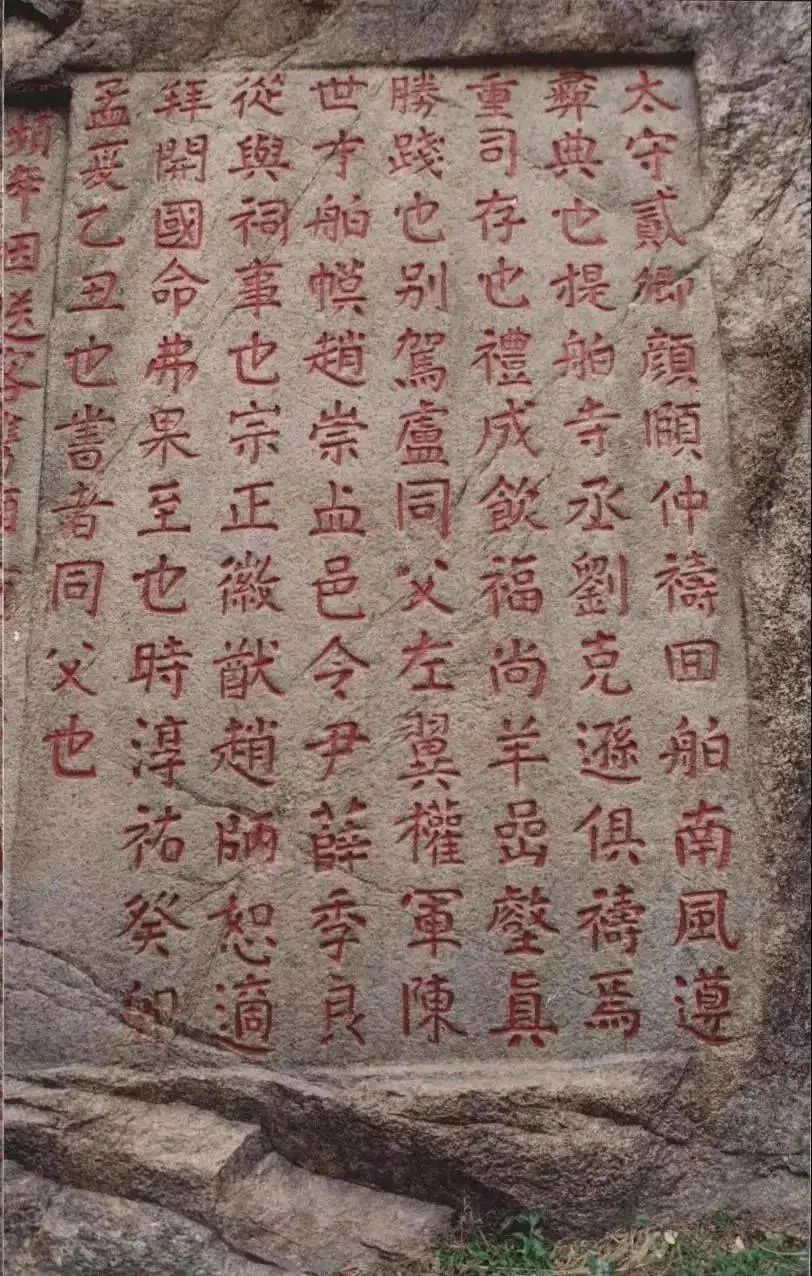 太守貳卿顔頤仲禱回舶南風遵
彞典也提舶寺丞劉克遜俱禱焉
重司存也禮成飲福尚羊嵒壑眞
勝踐也别駕盧同父左翼權軍陳
世才舶幙趙崇盁邑令尹薛季良
從與祠事也宗正徽猷趙師恕適
拜開國命弗果至也時淳祐癸卯
孟夏乙丑也書者同父也
因送客